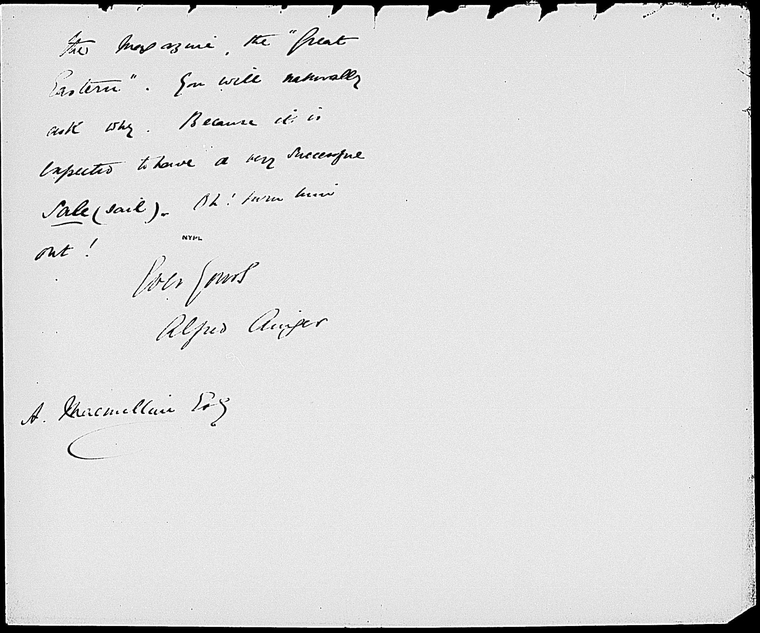 the Magazine, the "Great
Eastern". You will naturally
ask why. Because it is
expected to have a very successful
Sale (sail). Oh! turn him
out!
NYPL
Ever yours
Alfred Ainger
A. Macmillan Esq